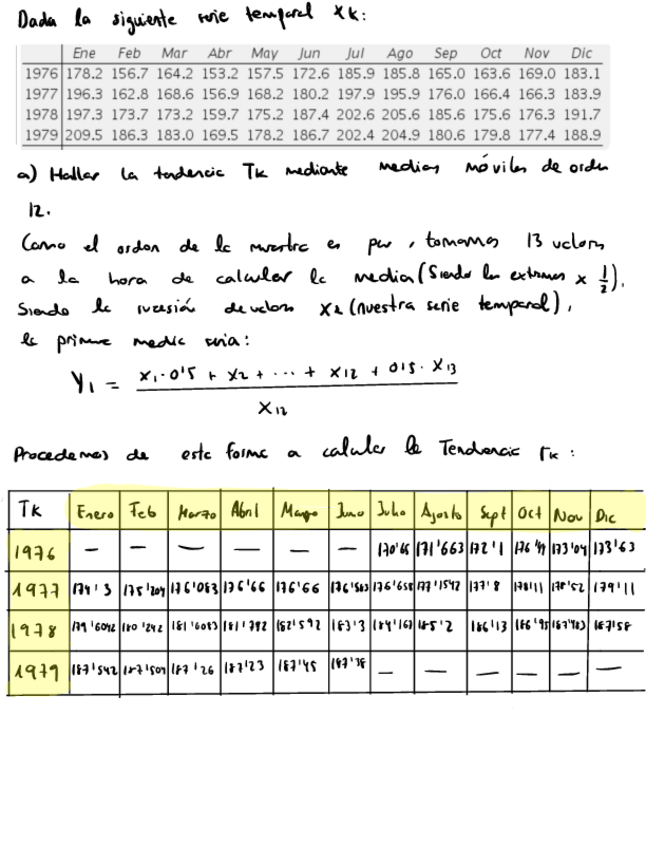 Dada la siguiente serie temporal Xk:
Ene Feb Mar Abr May Jun Jul Ago Sep Oct Nov Dic
1976 178.2 156.7 164.2 153.2 157.5 172.6 185.9 185.8 165.0 163.6 169.0 183.1
1977 196.3 162.8 168.6 156.9 168.2 180.2 197.9 195.9 176.0 166.4 166.3 183.9
1978 197.3 173.7 173.2 159.7 175.2 187.4 202.6 205.6 185.6 175.6 176.3 191.7
1979 209.5 186.3 183.0 169.5 178.2 186.7 202.4 204.9 180.6 179.8 177.4 188.9
a) Hallar la tendencia Tk mediante medias móviles de orden
12.
Como el orden de la muestra es par, tomamos 13 valores
a la hora de calcular la media (Siendo los extremos x 1/2).
Siendo la sucesión de valores Xk (nuestra serie temporal),
la primera media seria:
Y1 = (X1·0'5 + X2 + ... + X12 + 0'5·X13) / X12
Procedemos de esta forma a calcular la Tendencia Tk:
TK Enero Feb Marzo Abril Mayo Junio Julio Agosto Sept Oct Nov Dic
1976 — — — — — — 170'65 171'663 172'1 173'04 173'63
1977 174'3 175'204 176'083 176'66 176'66 176'583 176'658 177'1542 177'8 178'11 178'52 179'11
1978 179'6042 180'242 181'6083 181'792 182'592 183'3 184'167 185'2 186'13 186'95 187'483 187'58
1979 187'542 187'504 187'26 187'23 187'45 187'38 — — — — — —